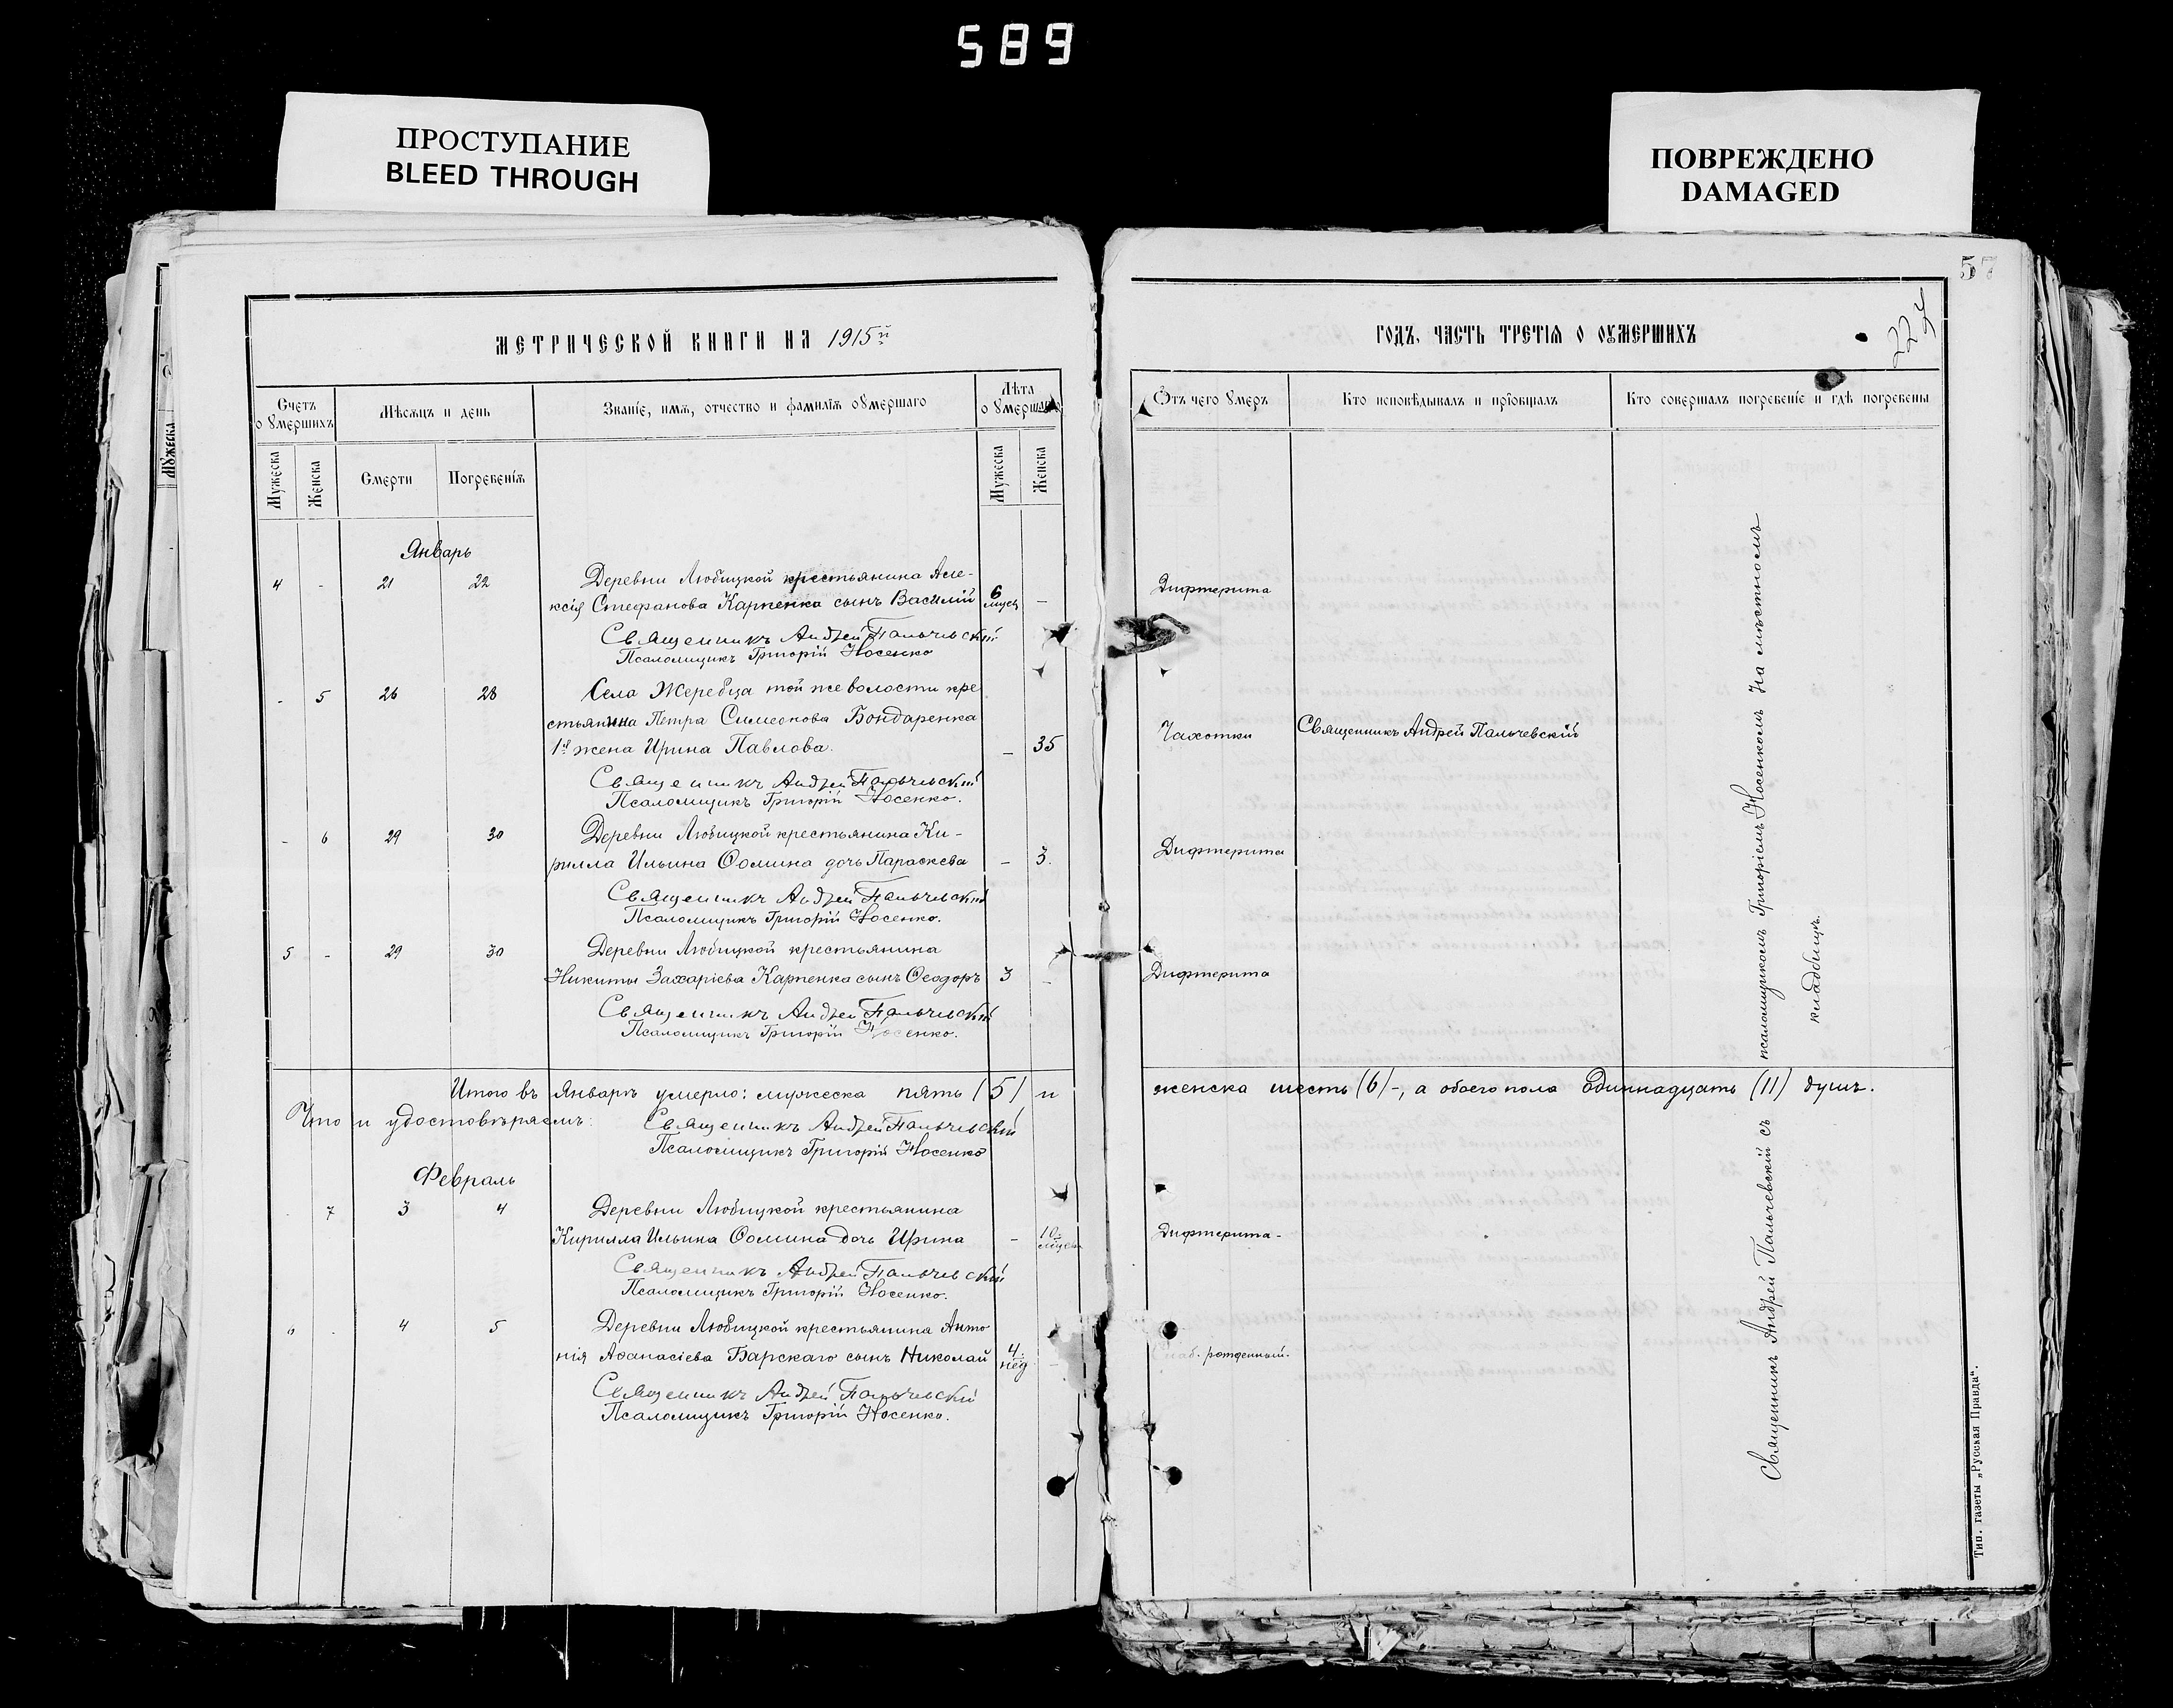 589
ПРОСТУПАНИЕ
BLEED THROUGH
ПОВРЕЖДЕНО
DAMAGED
57
МЕТРИЧЕСКОЙ КНИГИ НА 1915й
Счетъ о умершихъ
Мѣсяцъ и день
Званіе, имя, отчество и фамилія умершаго
Лѣта о умершаго
Мужеска
Женска
Смерти
Погребенія
Мужеска
Женска
Январь
4 - 21 22 Деревни Любицкой крестьянина Але-
ксія Стефанова Карпенка сынъ Василій 6 мѣсяц -
Священникъ Андрей Пальчевский
Псаломщикъ Григорій Носенко
- 5 26 28 Села Жеребца той же волости кре
стьянина Петра Симеонова Бондаренка
1я жена Ирина Павлова. - 35
Священникъ Андрей Пальчевский
Псаломщикъ Григорій Носенко.
- 6 29 30 Деревни Любицкой крестьянина Ки-
рилла Ильина Ѳомина дочь Параскева - 3.
Священникъ Андрей Пальчевский
Псаломщикъ Григорій Носенко.
5 - 29 30 Деревни Любицкой крестьянина
Никиты Захаріева Карпенка сынъ Ѳеодоръ 3 -
Священникъ Андрей Пальчевский
Псаломщикъ Григорій Носенко.
Итого въ Январѣ умерло: мужеска пять (5) и
Что и удостовѣряемъ: Священникъ Андрей Пальчевский
Псаломщикъ Григорій Носенко
Февраль
7 3 4 Деревни Любицкой крестьянина
Кирилла Ильина Ѳомина дочь Ирина - 10 мѣсяц
Священникъ Андрей Пальчевский
Псаломщикъ Григорій Носенко.
4 5 Деревни Любицкой крестьянина Анто
нія Аѳанасіева Барскаго сынъ Николай 4 нед
Священникъ Андрей Пальчевский
Псаломщикъ Григорій Носенко.
ГОДЪ, ЧАСТЬ ТРЕТІЯ О ОУМЕРШИХЪ
Отъ чего умеръ
Кто исповѣдывалъ и пріобщалъ
Кто совершалъ погребеніе и гдѣ погребены
Дифтерита
Чахотки Священникъ Андрей Пальчевскій
Дифтерита
Дифтерита
женска шесть (6)-, а обоего пола одиннадцать (11) душъ.
Дифтерита-
рожденный.
Священникъ Андрей Пальчевскій съ псаломщикомъ Григоріемъ Носенкомъ На мѣстномъ
кладбищѣ.
Тип. газеты „Русская Правда“.
Мужеска